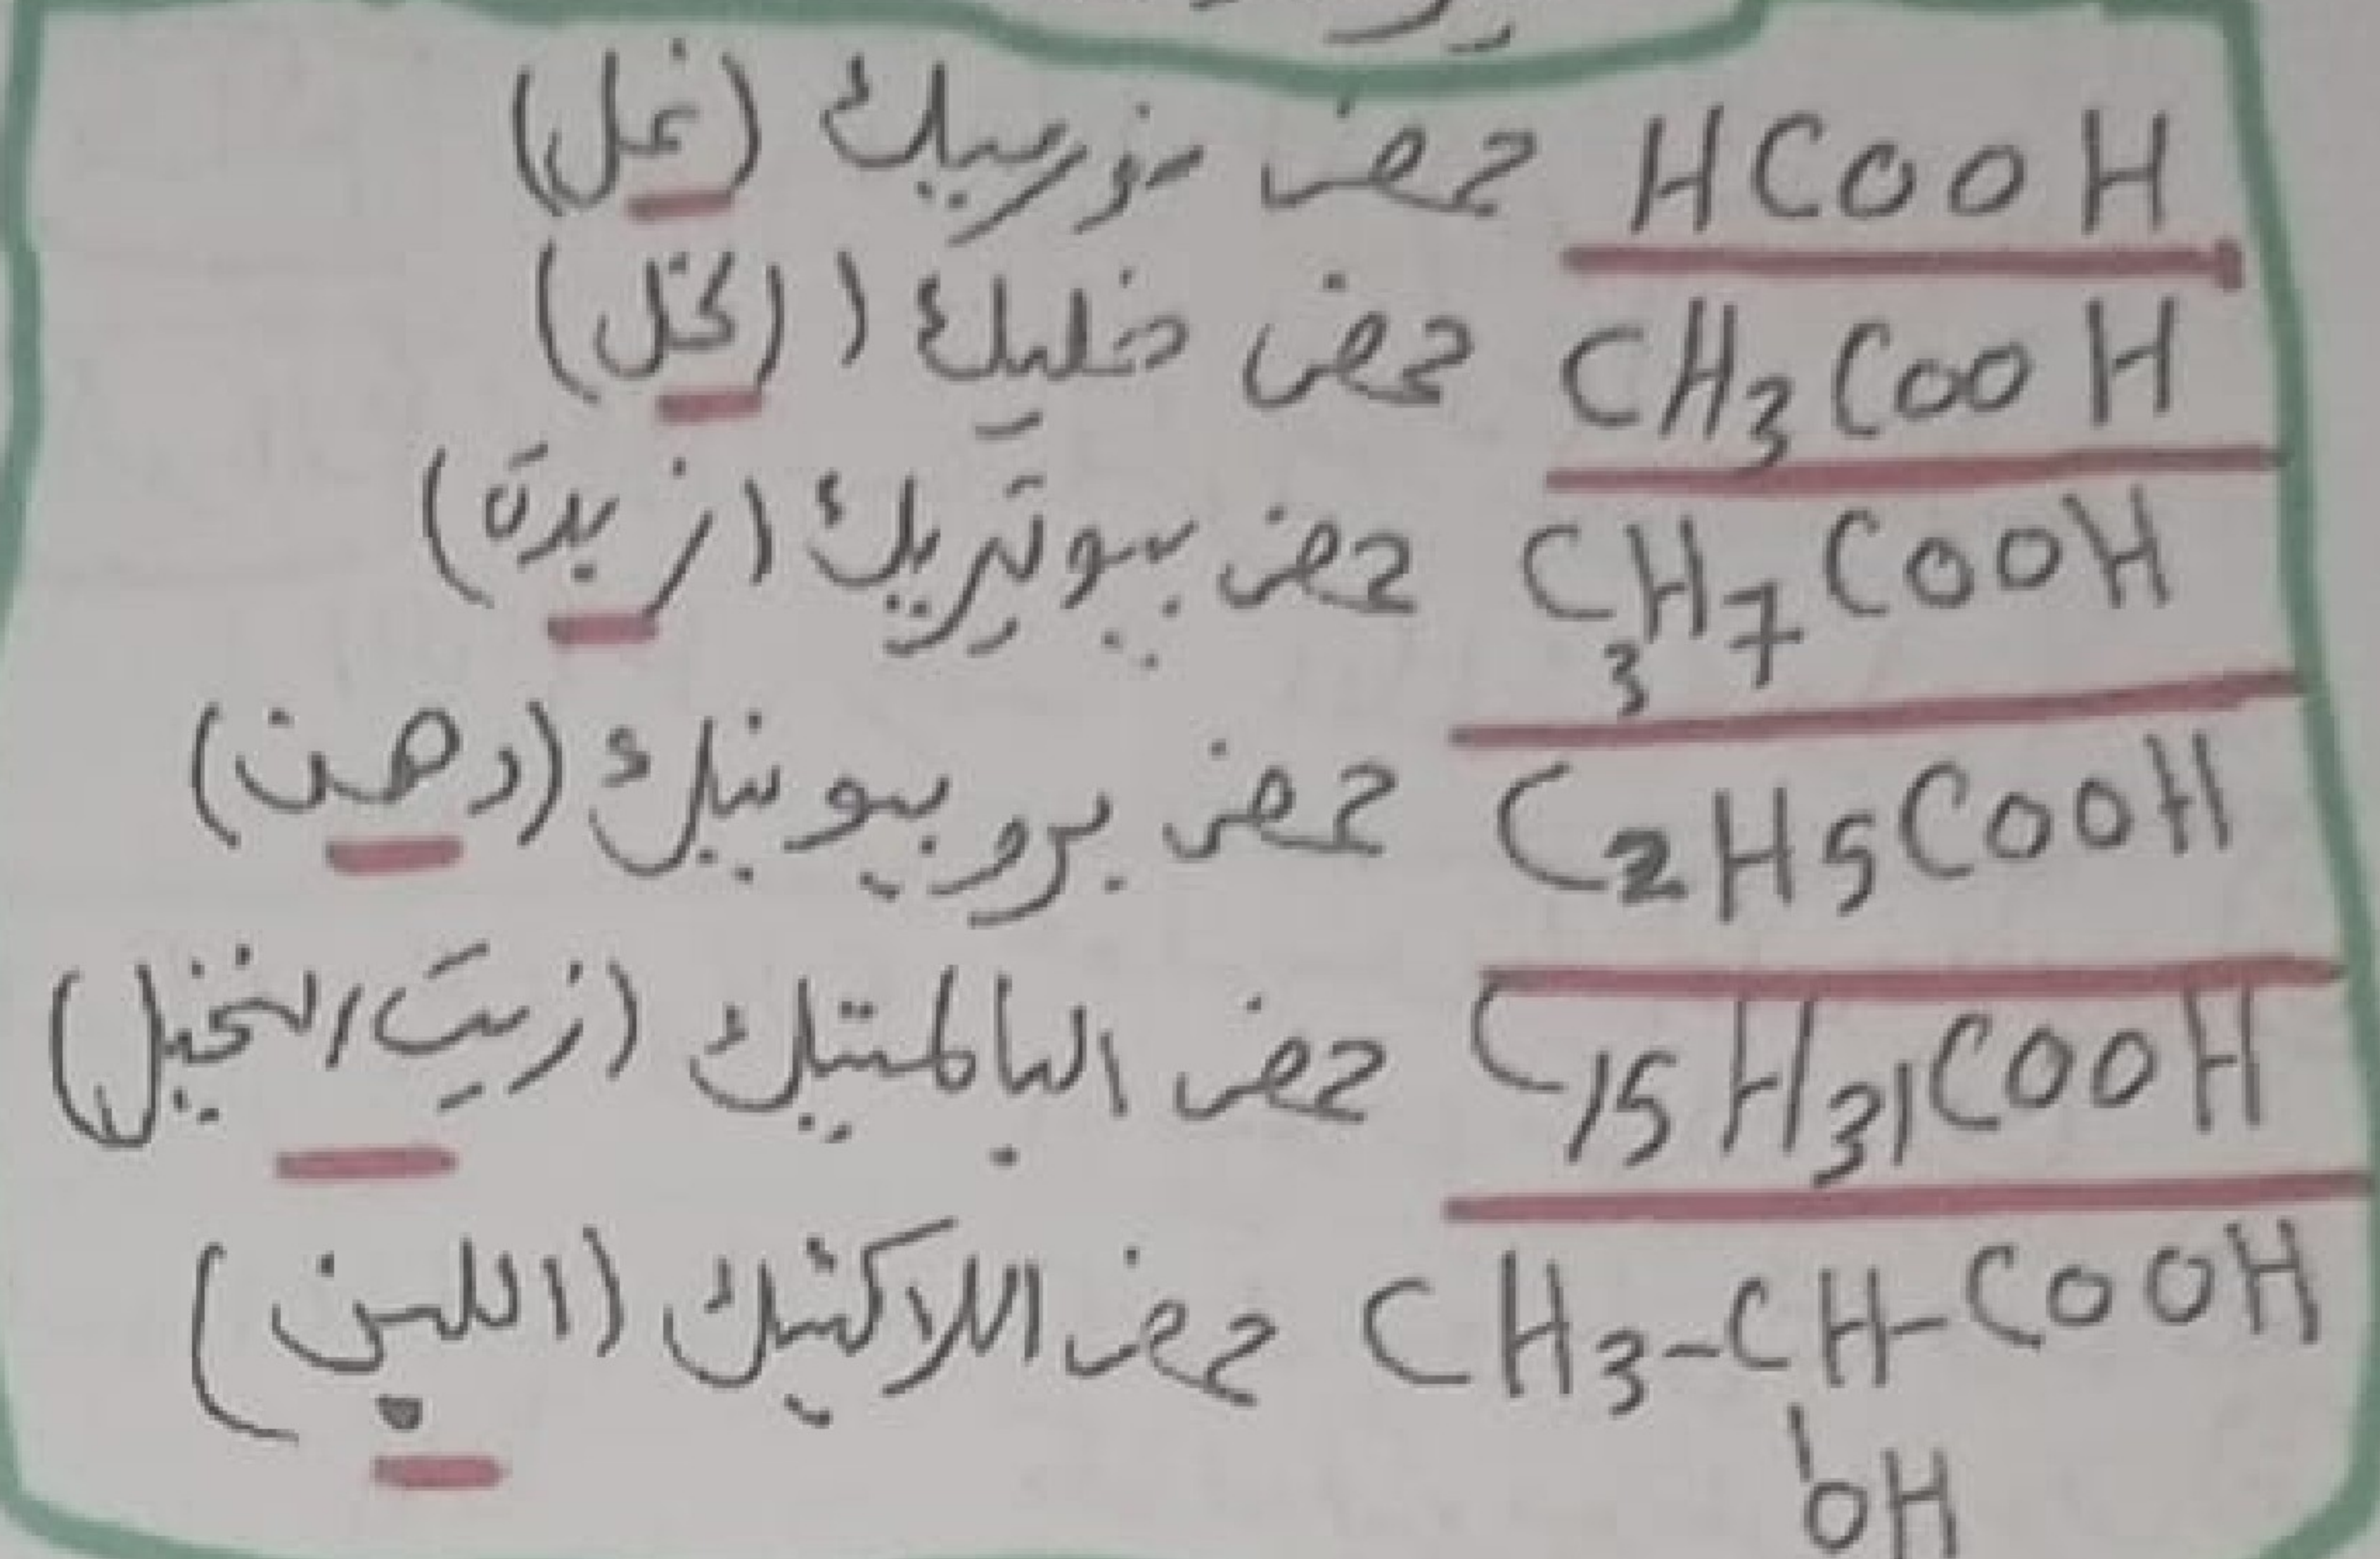 HCOOH حمض فورميك (نمل)
CH3COOH حمض خليك (الخل)
C3H7COOH حمض بيوتريك (زبدة)
C2H5COOH حمض بروبيونيك (دهن)
C15H31COOH حمض البالمتيك (زيت النخيل)
CH3-CH-COOH حمض اللاكتيك (اللبن)
OH